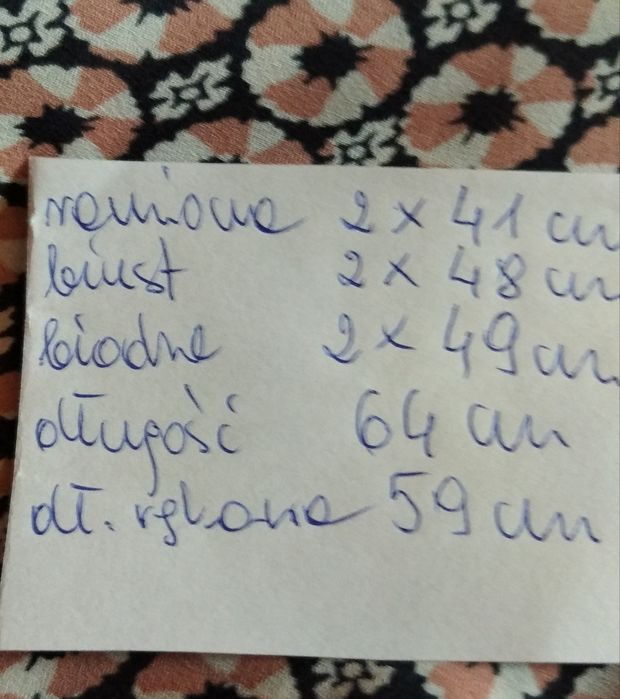 ramiona 2 x 41 cm
biust 2 x 48 cm
biodra 2 x 49 cm
długość 64 cm
dł. rękawa 59 cm